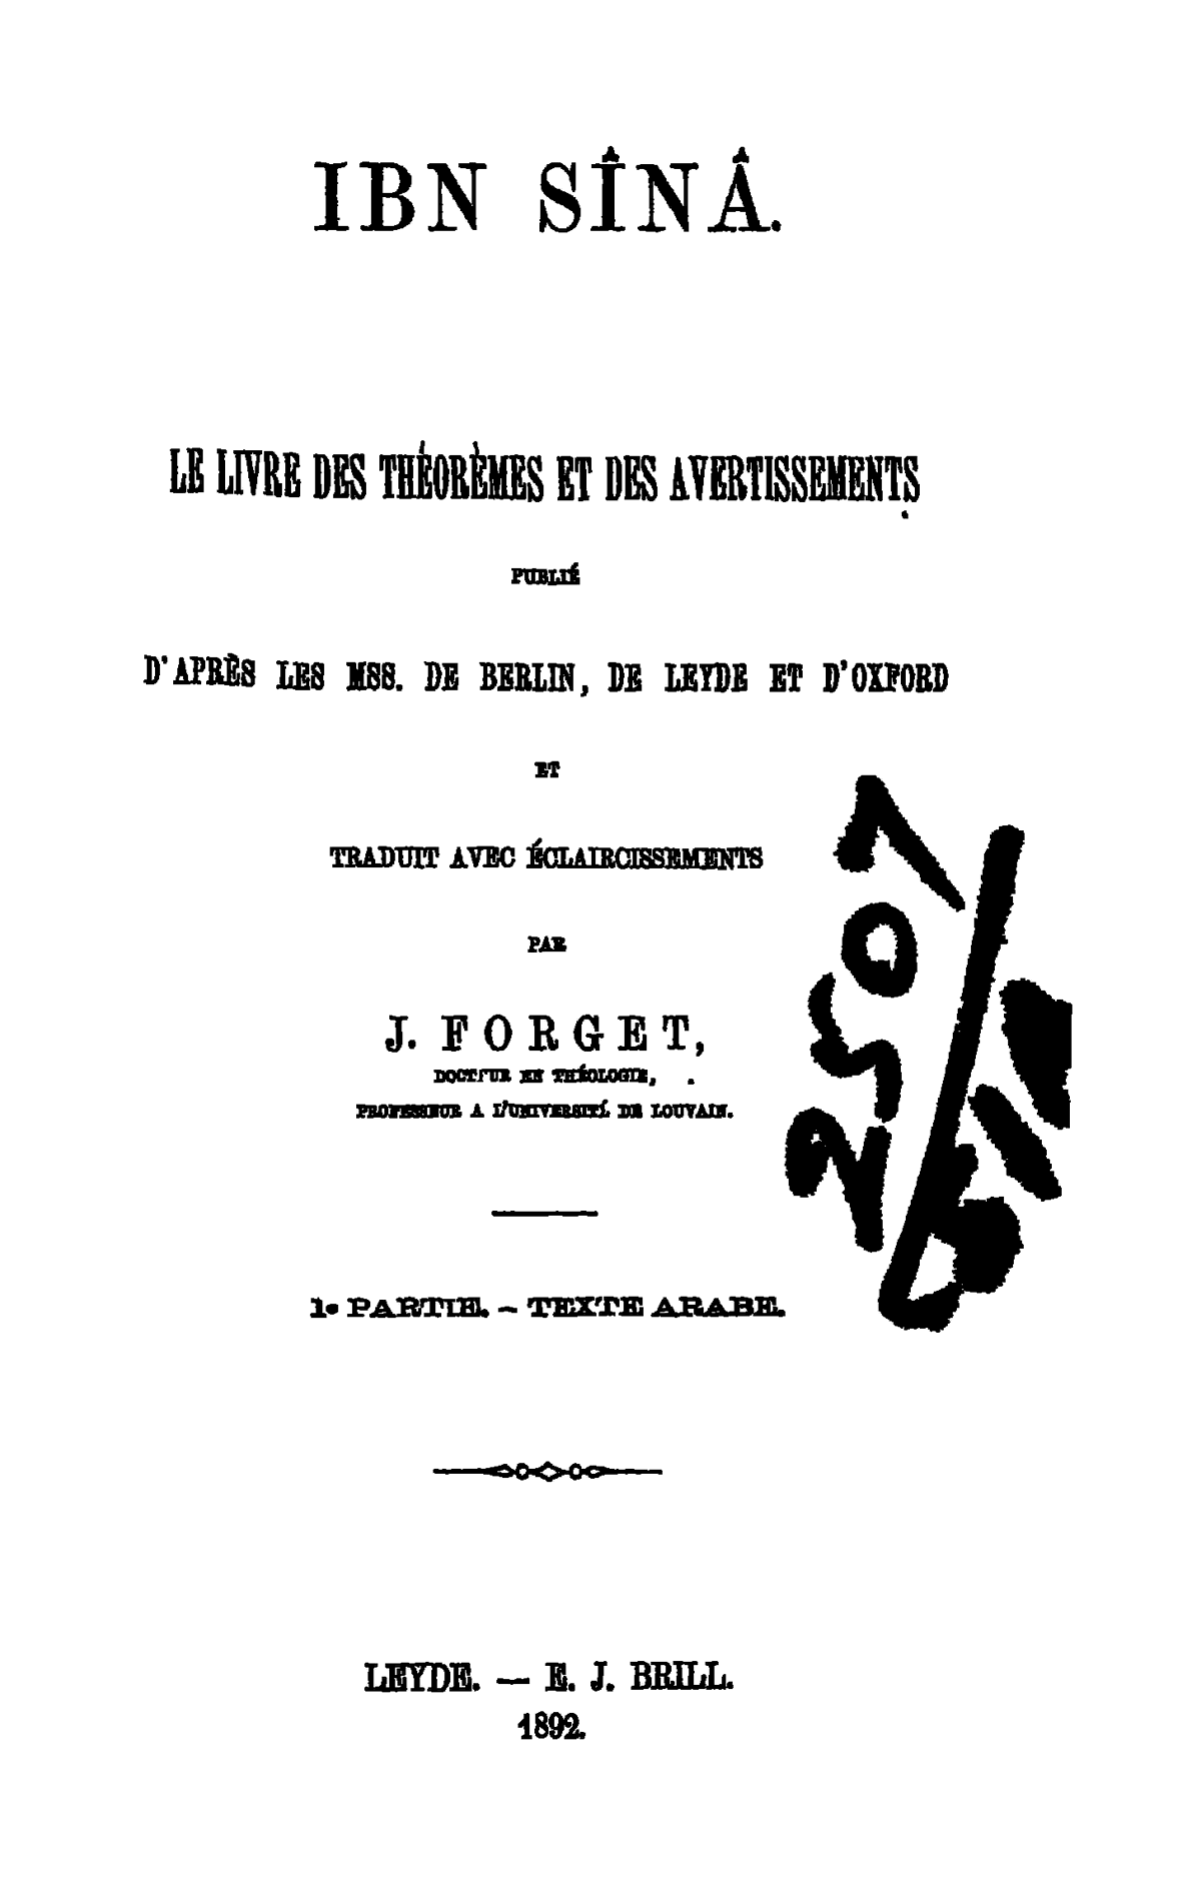 IBN SÎNÂ.
LE LIVRE DES THÉORÈMES ET DES AVERTISSEMENTS
PUBLIÉ
D'APRÈS LES MSS. DE BERLIN, DE LEYDE ET D'OXFORD
ET
TRADUIT AVEC ÉCLAIRCISSEMENTS
PAR
J. FORGET,
DOCTEUR EN THÉOLOGIE,
PROFESSEUR A L'UNIVERSITÉ DE LOUVAIN.
1e PARTIE. – TEXTE ARABE.
LEYDE. — E. J. BRILL.
1892.
2507